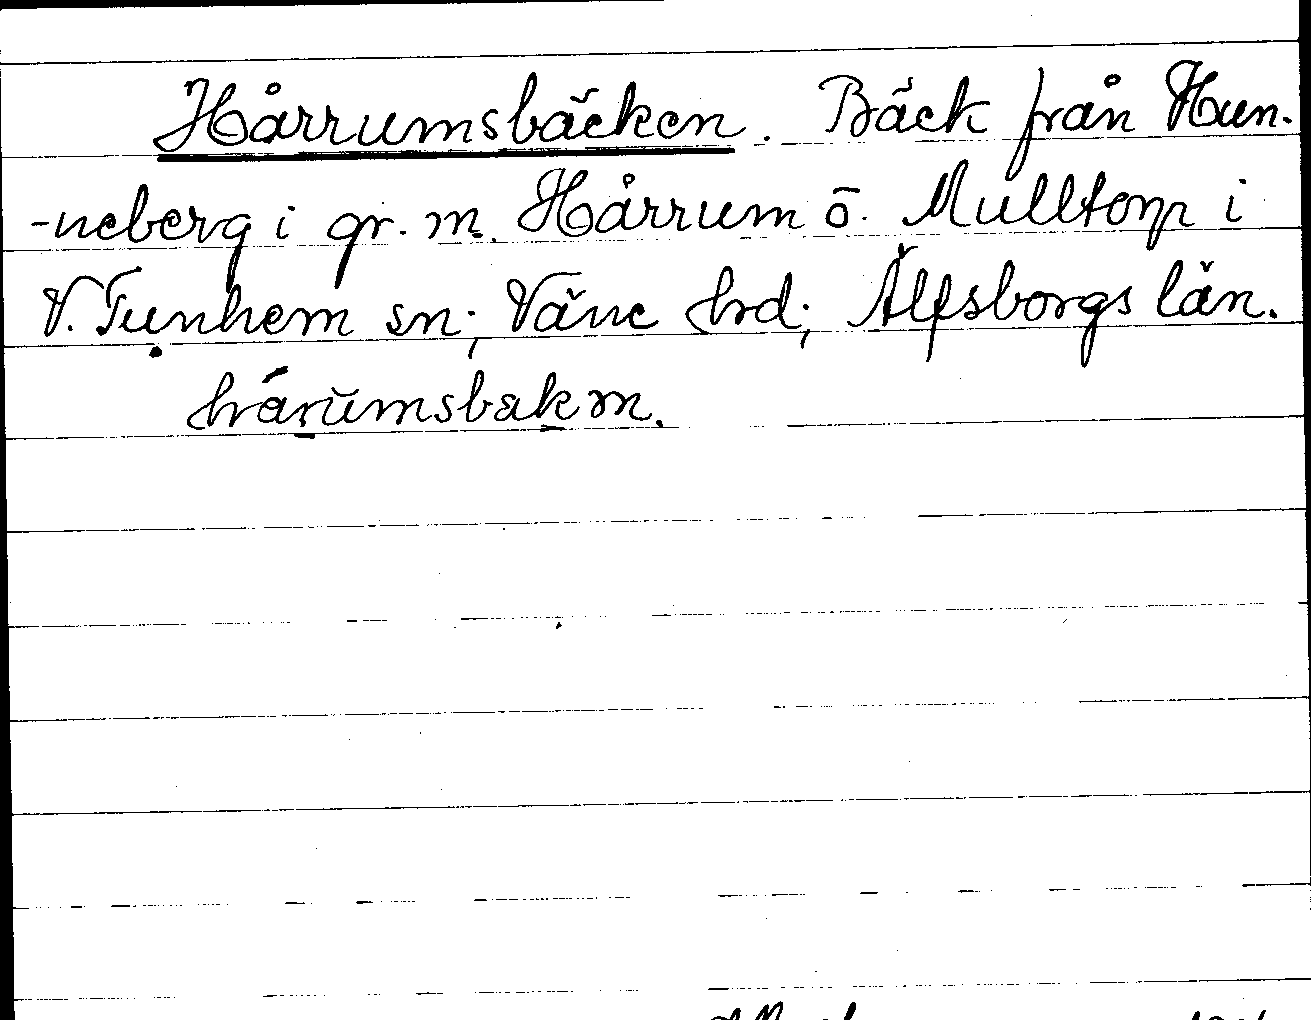 Hårrumsbäcken. Bäck från Hun-
-neberg i gr. m. Hårrum ö. Mulltorp i
V. Tunhem sn; Väne hrd; Älfsborgs län.